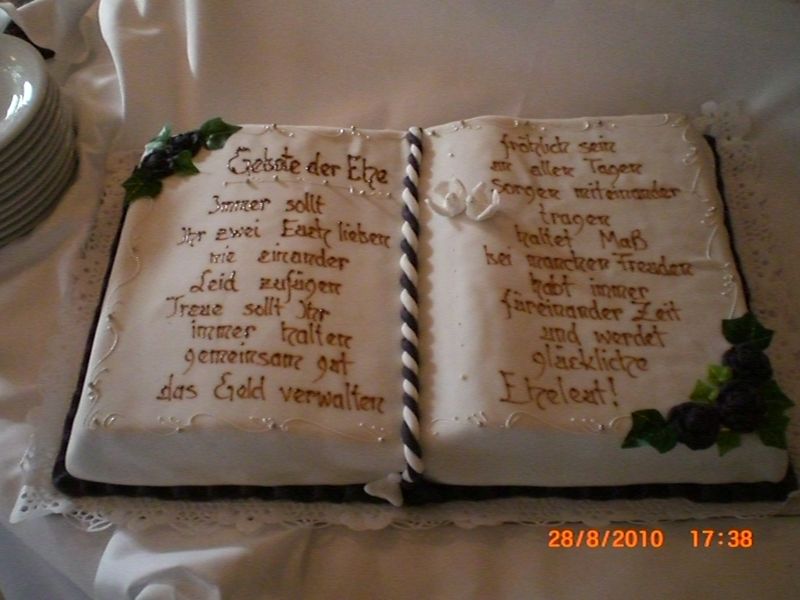 Gebote der Ehe
Immer sollt
Ihr zwei Euch lieben
nie einander
Leid zufügen
Treue sollt Ihr
immer halten
gemeinsam gut
das Geld verwalten
fröhlich sein
an allen Tagen
sorgen miteinander
tragen
haltet Maß
bei manchen Freuden
habt immer
füreinander Zeit
und werdet
glückliche
Eheleut!
28/8/2010 17:38